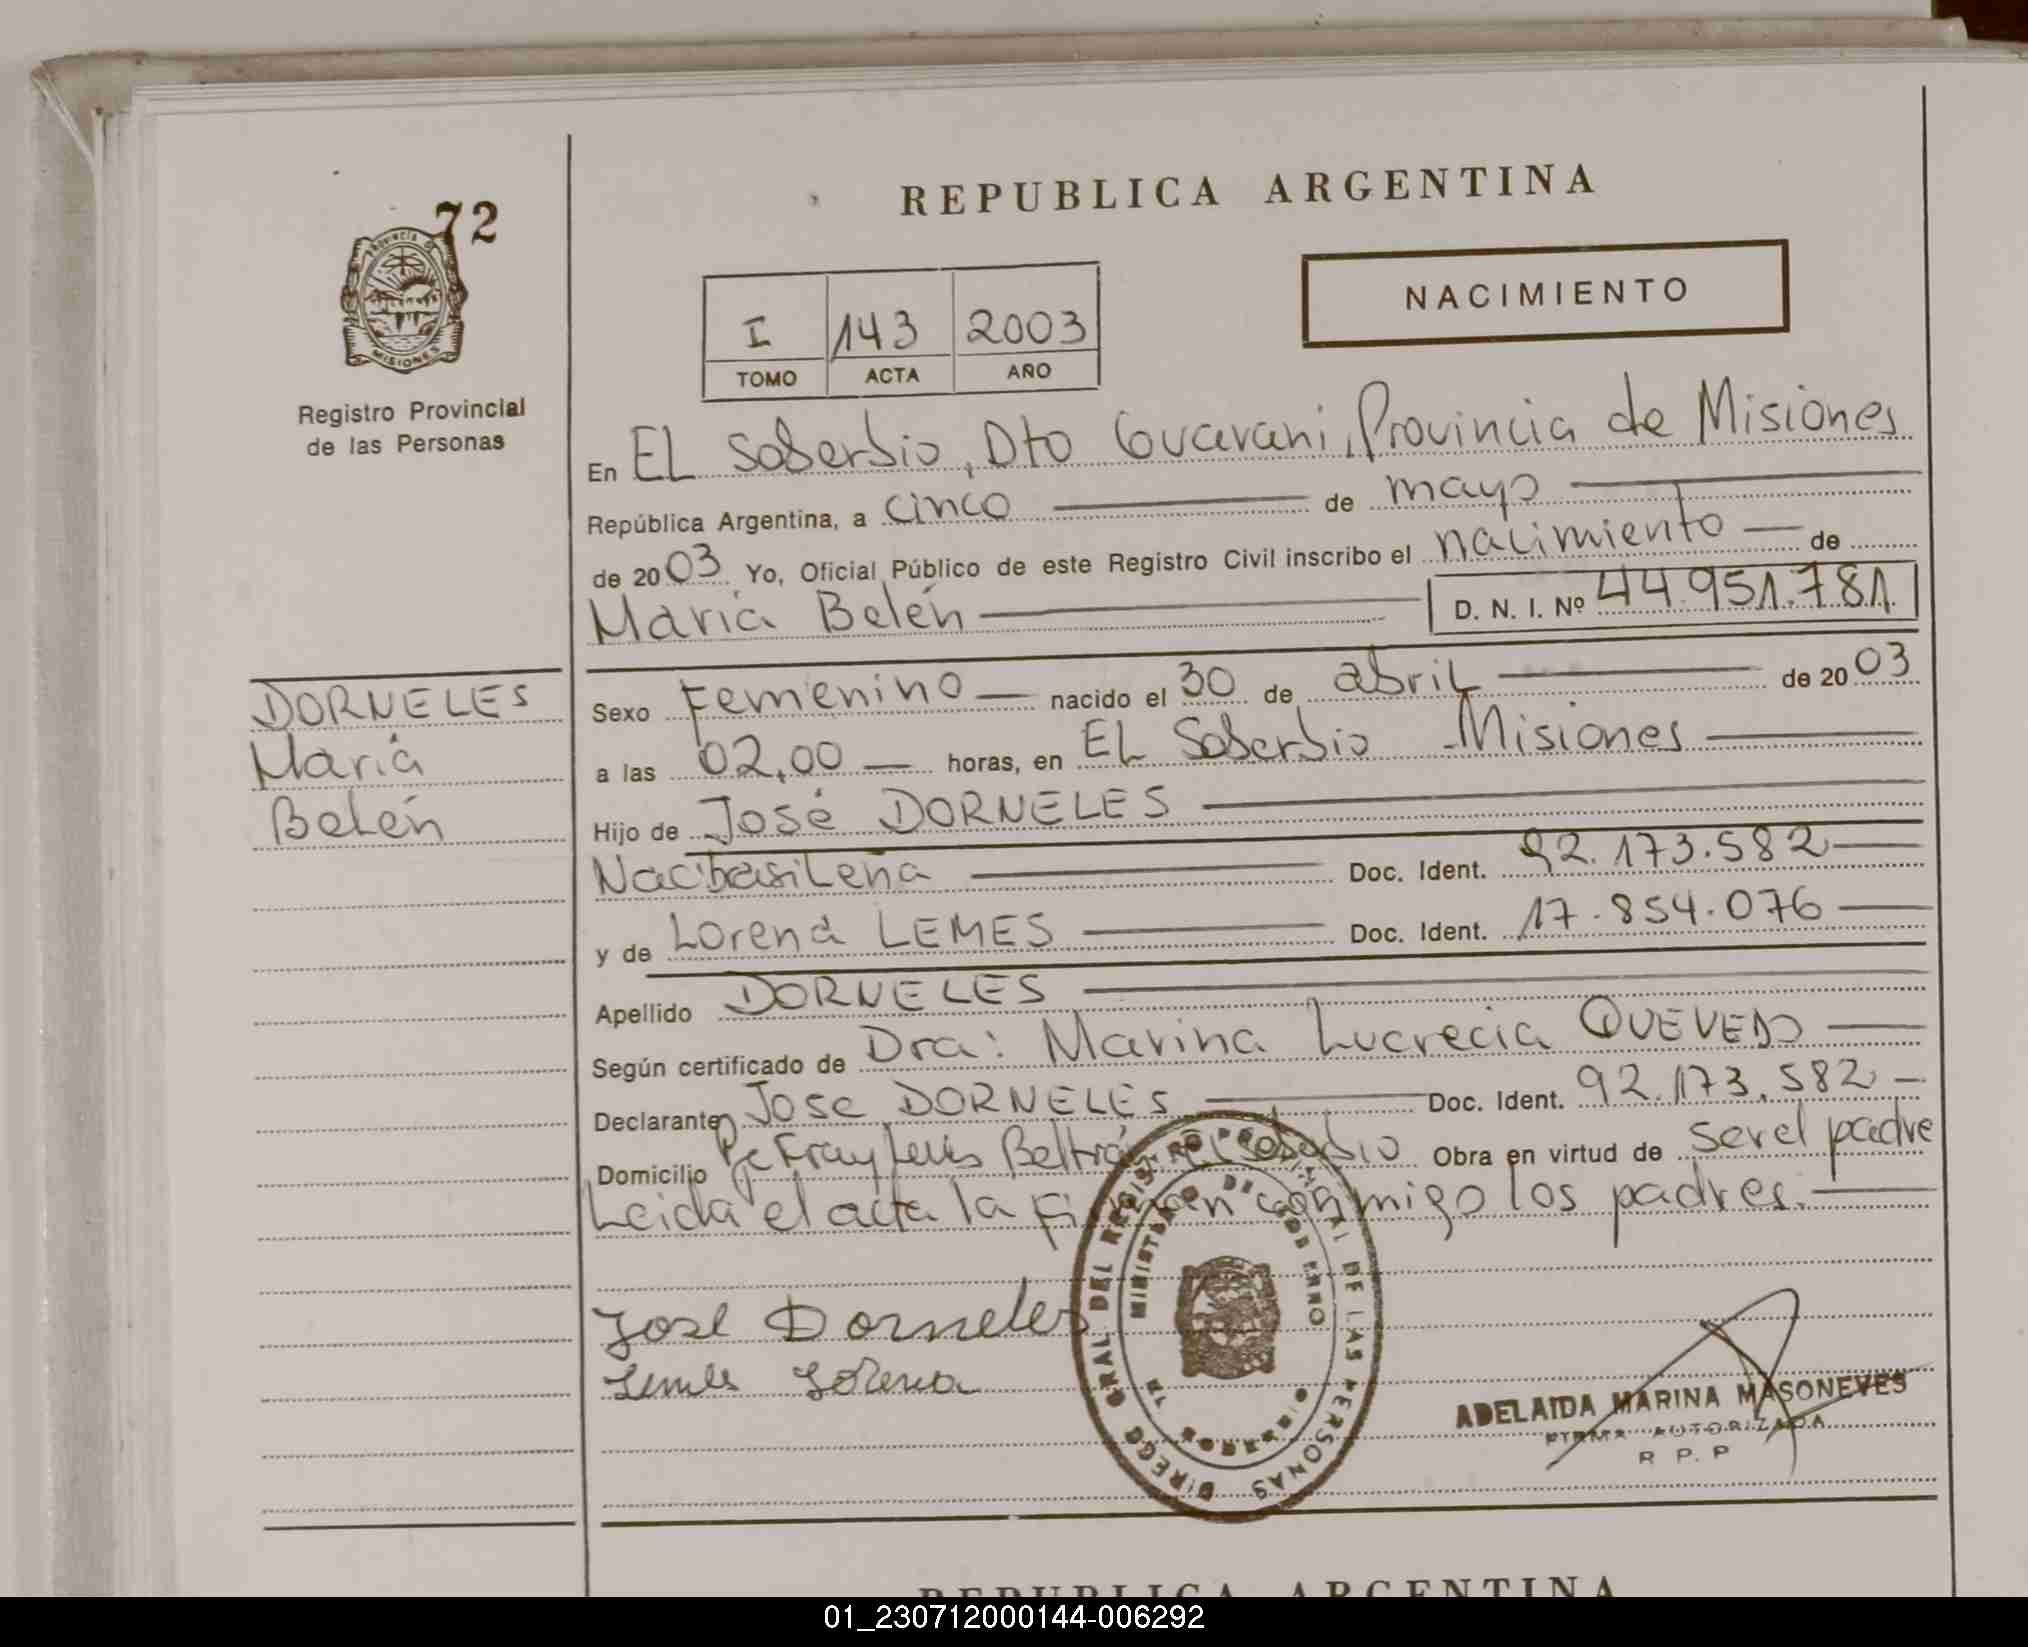 72
PROVINCIA DE
MISIONES
Registro Provincial
de las Personas
REPUBLICA ARGENTINA
NACIMIENTO
I 143 2003
TOMO ACTA AÑO
En EL Soberbio, Dto Guarani, Provincia de Misiones
República Argentina, a cinco de mayo
de 2003 Yo, Oficial Público de este Registro Civil inscribo el nacimiento de
María Belén D. N. I. Nº 44.951.781
DORNELES
María
Belén
Sexo Femenino nacido el 30 de abril de 2003
a las 02,00 horas, en EL Soberbio - Misiones
Hijo de José DORNELES
Nac: brasileña Doc. Ident. 92.173.582
y de Lorena LEMES Doc. Ident. 17.854.076
Apellido DORNELES
Según certificado de Dra: Marina Lucrecia QUEVEDO
Declarante José DORNELES Doc. Ident. 92.173.582
Domicilio Fray Luis Beltrán El Soberbio Obra en virtud de ser el padre
Leida el acta la firman conmigo los padres.
José Dorneles
Lemes Lorena
DIRECC. GRAL DEL REGIST. PROVINCIAL DE LAS PERSONAS
MINISTERIO DE GOBIERNO
MISIONES
ADELAIDA MARINA MASONEVES
FIRMA AUTORIZADA
R P. P
REPUBLICA ARGENTINA
01_230712000144-006292